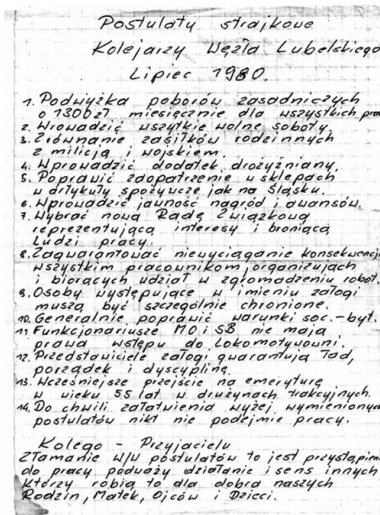 Postulaty strajkowe
Kolejarzy Węzła Lubelskiego
Lipiec 1980.
1. Podwyżka poborów zasadniczych
o 1300zł miesięcznie dla wszystkich prac
2. Wrowadzić wszytkie wolne soboty.
3. Zrównanie zasiłków rodzinnych
z milicją i wojskiem.
4. Wprowadzić dodatek drożyźniany.
5. Poprawić zaopatrzenie w sklepach
w artykuły spożywcze jak na Śląsku.
6. Wprowadzić jawność nagród i awansów.
7. Wybrać nową Radę Związkową
reprezentującą interesy i broniącą
Ludzi pracy.
8. Zagwarantować niewyciąganie konsekwencji
wszystkim pracownikom, organizującym
i biorących udział w zgromadzeniu robot.
9. Osoby występujące w imieniu załogi
muszą być szczególnie chronione.
10. Generalnie poprawić warunki soc.-byt.
11. Funkcjonariusze MO i SB nie mają
prawa wstępu do Lokomotywowni.
12. Przedstawiciele załogi gwarantują ład,
porządek i dyscyplinę.
13. Wcześniejsze przejście na emeryturę
w wieku 55 lat w drużynach trakcyjnych.
14. Do chwili załatwienia wyżej wymienionych
postulatów nikt nie podejmie pracy.
Kolego - Przyjacielu
Złamanie w/w postulatów to jest przystąpienie
do pracy podważy działanie i sens innych
którzy robią to dla dobra naszych
Rodzin, Matek, Ojców i Dzieci.